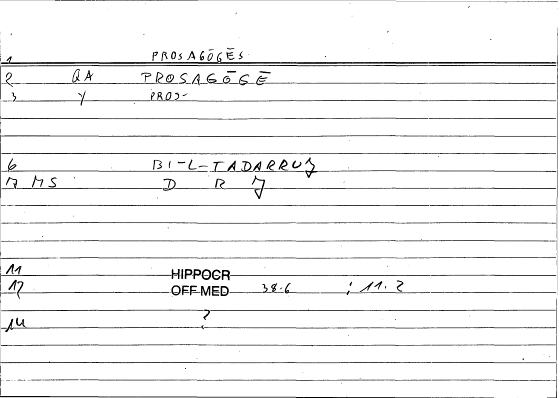 1 PROSAGŌGĒS
2 QA PROSAGŌGĒ
3 Y PROS-
6 BI-L-TADARRUJ
7 MS D R J
11 HIPPOCR
12 OFF MED 38.6 ; 11.2
14 ?